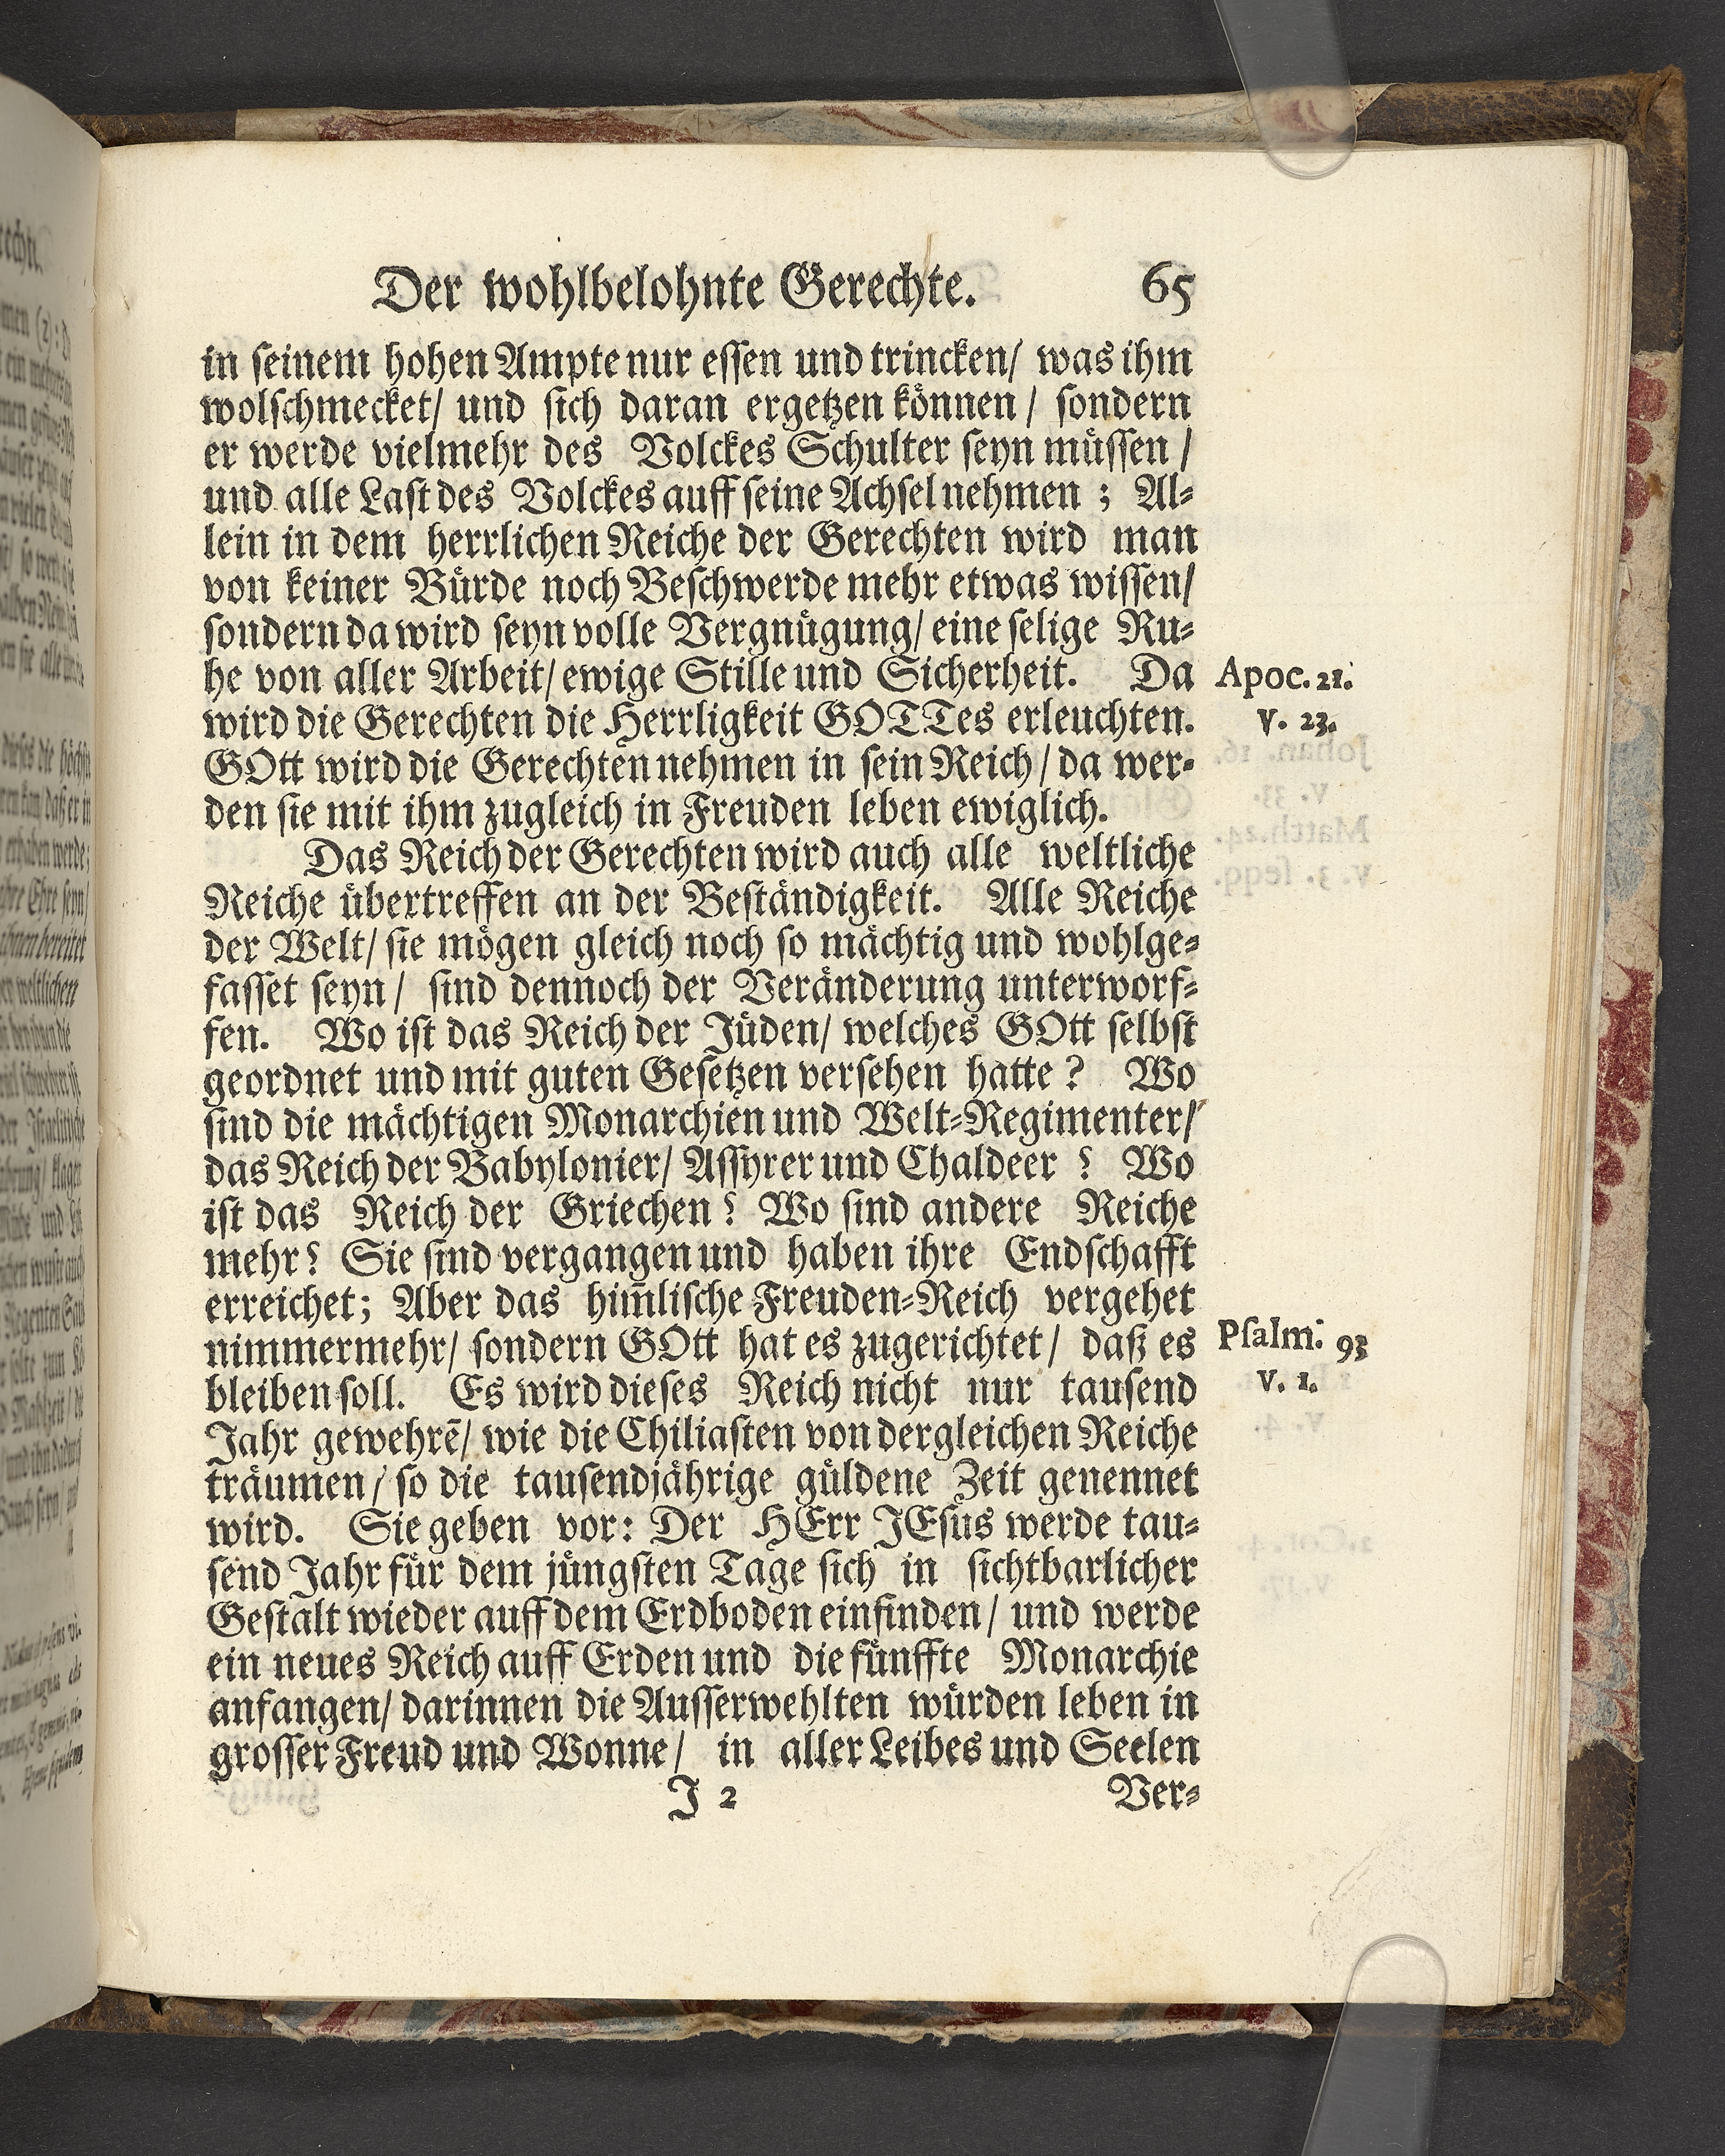 Der wohlbelohnte Gerechte. 65
in ſeinem hohen Ampte nur eſſen und trincken/ was ihm
wolſchmecket/ und ſich daran ergetzen können/ ſondern
er werde vielmehr des Volckes Schulter ſeyn müſſen/
und alle Laſt des Volckes auff ſeine Achſel nehmen; Al-
lein in dem herrlichen Reiche der Gerechten wird man
von keiner Bürde noch Beſchwerde mehr etwas wiſſen/
ſondern da wird ſeyn volle Vergnügung/ eine ſelige Ru-
he von aller Arbeit/ ewige Stille und Sicherheit. Da
Apoc. 21.
wird die Gerechten die Herrligkeit GOTTes erleuchten.
v. 23.
GOtt wird die Gerechten nehmen in ſein Reich/ da wer-
den ſie mit ihm zugleich in Freuden leben ewiglich.
Das Reich der Gerechten wird auch alle weltliche
Reiche übertreffen an der Beſtändigkeit. Alle Reiche
der Welt/ ſie mögen gleich noch ſo mächtig und wohlge-
faſſet ſeyn/ ſind dennoch der Veränderung unterworf-
fen. Wo iſt das Reich der Jüden/ welches GOtt ſelbſt
geordnet und mit guten Geſetzen verſehen hatte? Wo
ſind die mächtigen Monarchien und Welt-Regimenter/
das Reich der Babylonier/ Aſſyrer und Chaldeer? Wo
iſt das Reich der Griechen? Wo ſind andere Reiche
mehr? Sie ſind vergangen und haben ihre Endſchafft
erreichet; Aber das him̄liſche Freuden-Reich vergehet
nimmermehr/ ſondern GOtt hat es zugerichtet/ daß es
Pſalm. 93
bleiben ſoll. Es wird dieſes Reich nicht nur tauſend
v. 1.
Jahr gewehrē/ wie die Chiliaſten von dergleichen Reiche
träumen/ ſo die tauſendjährige güldene Zeit genennet
wird. Sie geben vor: Der HErr JEſus werde tau-
ſend Jahr für dem jüngſten Tage ſich in ſichtbarlicher
Geſtalt wieder auff dem Erdboden einfinden/ und werde
ein neues Reich auff Erden und die fünffte Monarchie
anfangen/ darinnen die Auſſerwehlten würden leben in
groſſer Freud und Wonne/ in aller Leibes und Seelen
J 2 Ver-